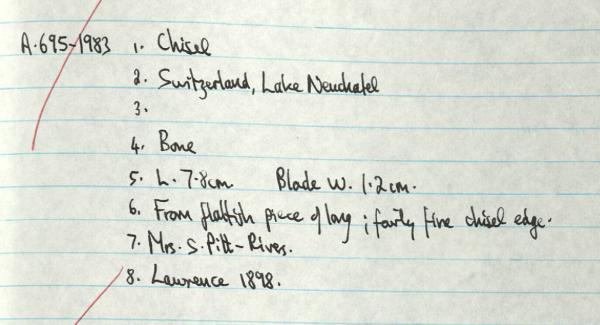 A.695-1983 1. Chisel
2. Switzerland, Lake Neuchatel
3.
4. Bone
5. L. 7.8cm Blade W. 1.2cm.
6. From flattish piece of long ; fairly fine chisel edge.
7. Mrs. S. Pitt-Rivers.
8. Lawrence 1898.